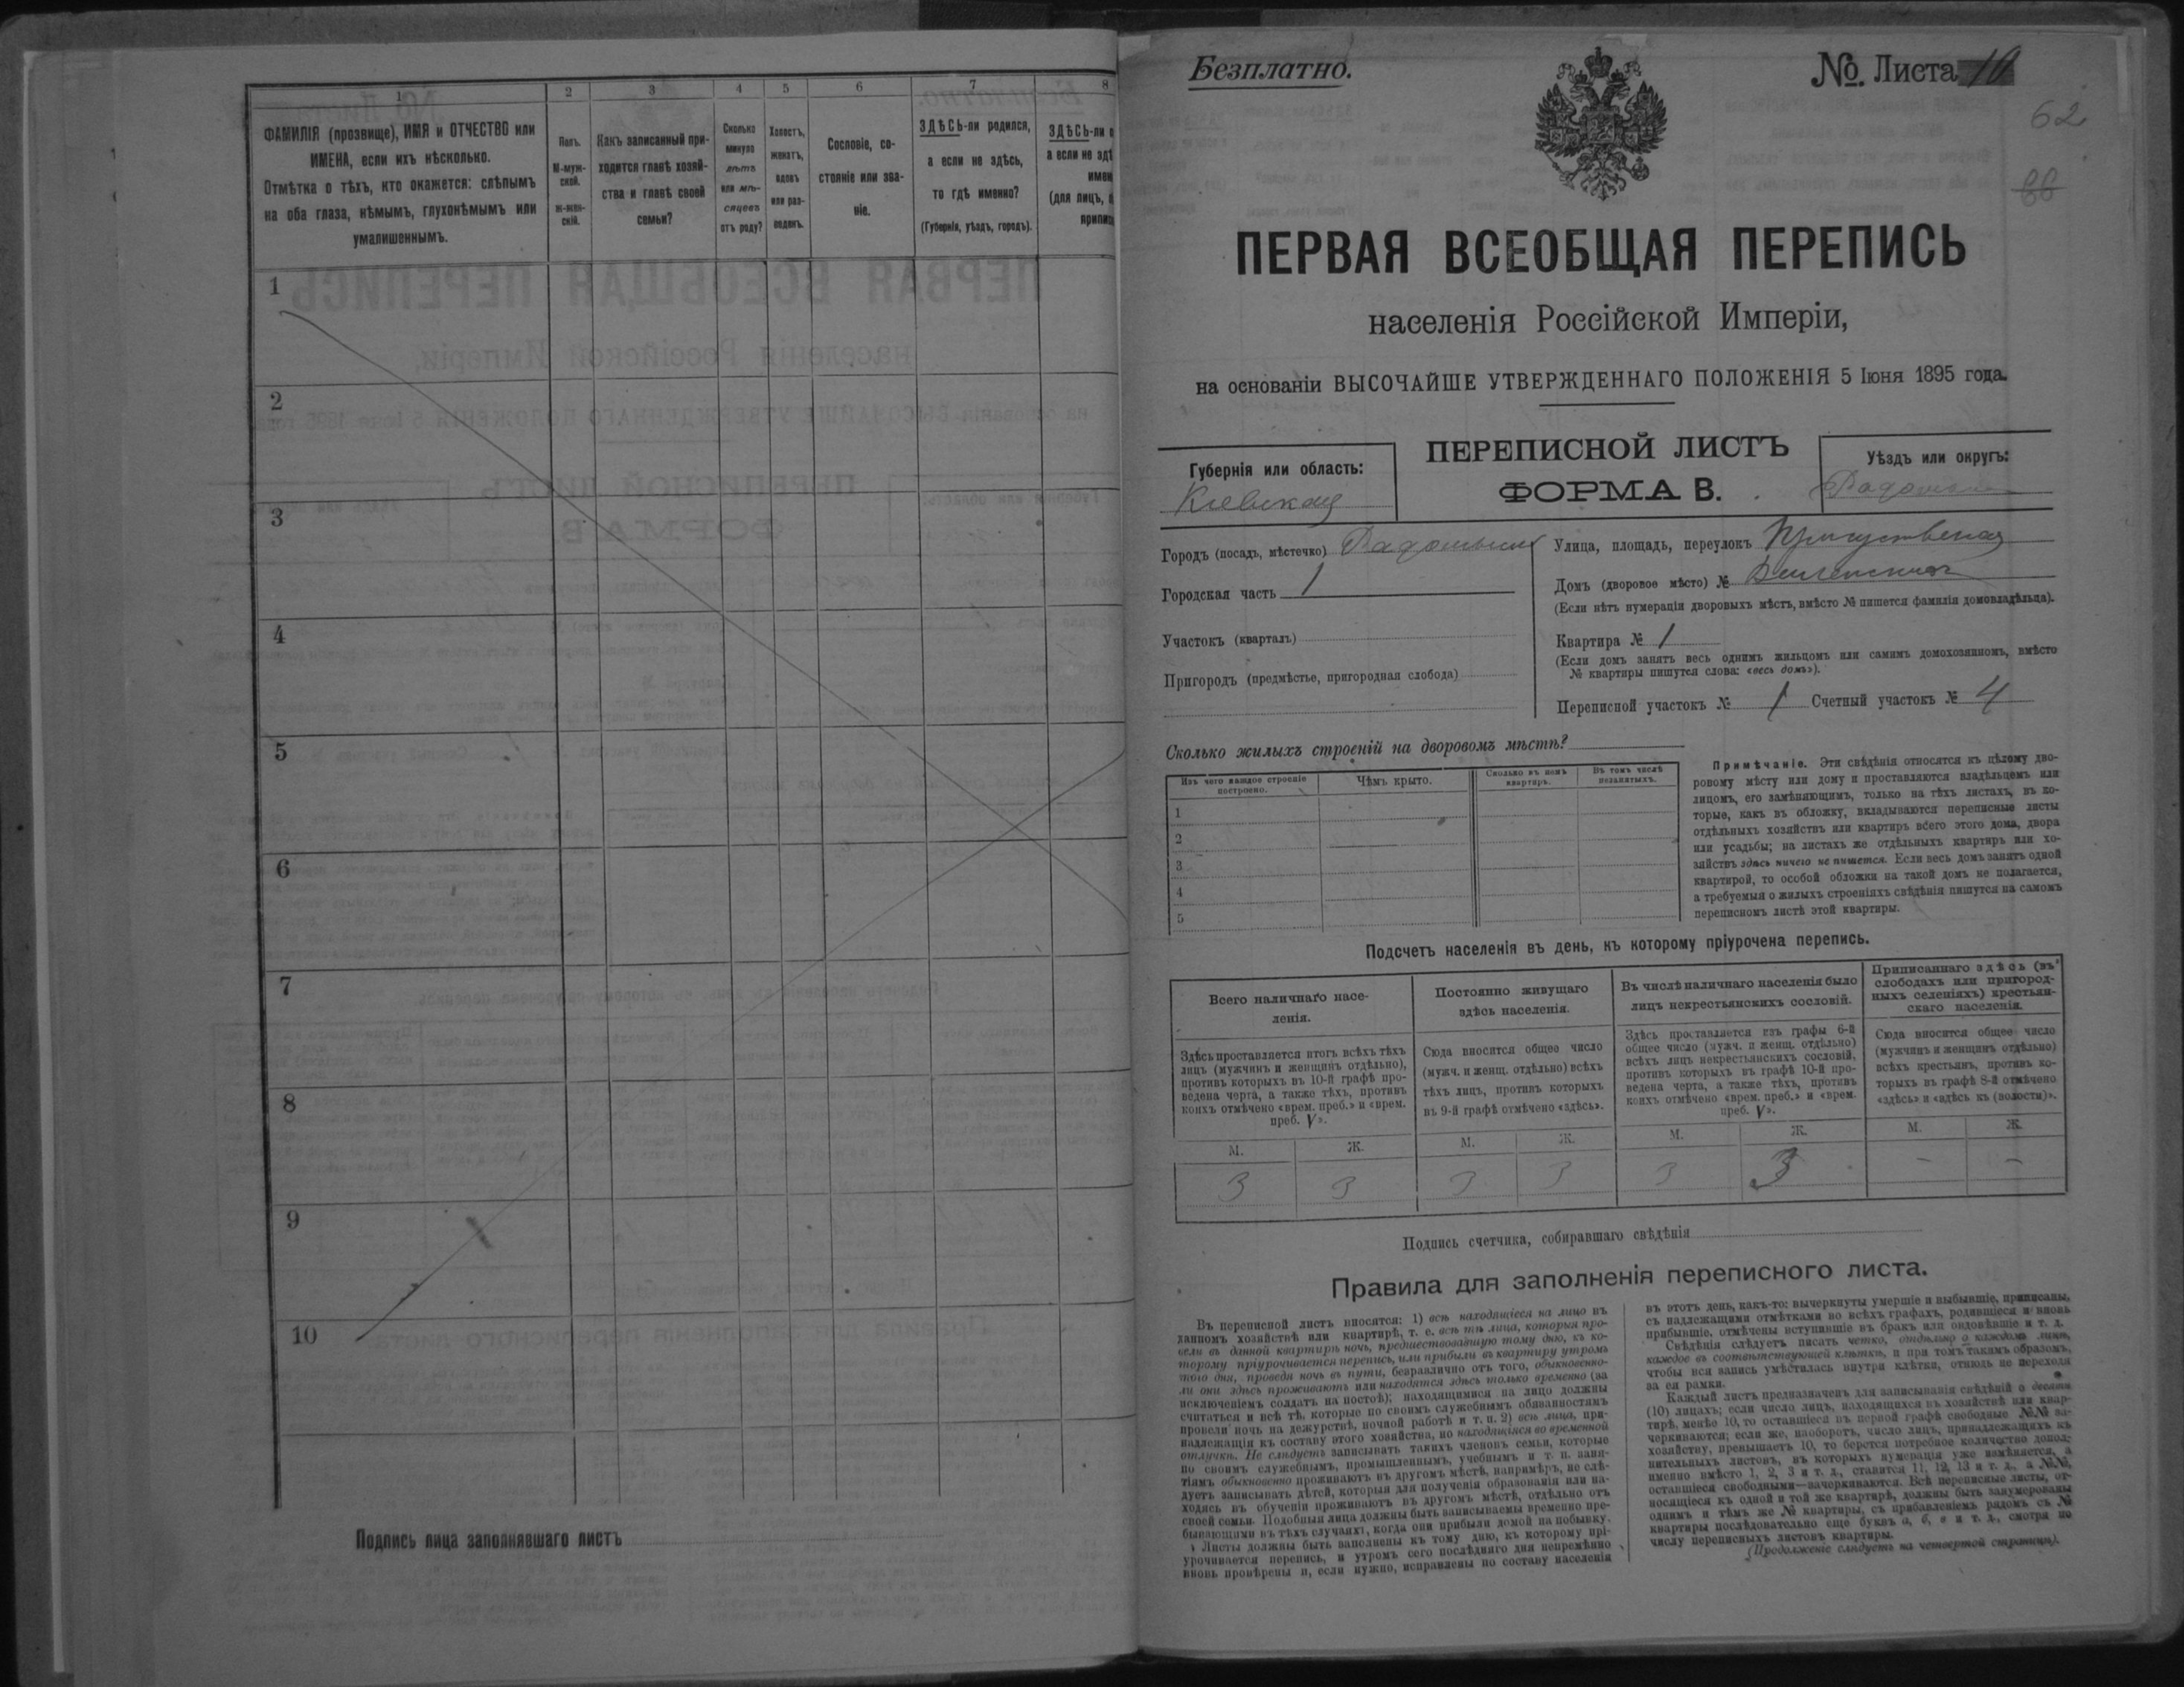 1 2 3 4 5 6 7 8
ФАМИЛІЯ (прозвище), ИМЯ и ОТЧЕСТВО или
ИМЕНА, если ихъ нѣсколько.
Отмѣтка о тѣхъ, кто окажется: слѣпымъ
на оба глаза, нѣмымъ, глухонѣмымъ или
умалишеннымъ.
Полъ.
М-муж-
ской.
Ж-жен-
скій.
Какъ записанный при-
ходится главѣ хозяй-
ства и главѣ своей
семьи?
Сколько
минуло
лѣтъ
или мѣ-
сяцевъ
отъ роду?
Холостъ,
женатъ,
вдовъ
или раз-
веденъ.
Сословіе, со-
стояніе или зва-
ніе.
ЗДѢСЬ-ли родился,
а если не здѣсь,
то гдѣ именно?
(Губернія, уѣздъ, городъ).
ЗДѢСЬ-ли
а если не
(для лицъ,
1
2
3
4
5
6
7
8
9
10
Подпись лица заполнявшаго листъ
Безплатно.
№ Листа 10
62
ПЕРВАЯ ВСЕОБЩАЯ ПЕРЕПИСЬ
населенія Россійской Имперіи,
на основаніи ВЫСОЧАЙШЕ УТВЕРЖДЕННАГО ПОЛОЖЕНІЯ 5 Іюня 1895 года.
Губернія или область:
Кіевская
ПЕРЕПИСНОЙ ЛИСТЪ
ФОРМА В.
Уѣздъ или округъ:
Городъ (посадъ, мѣстечко) Радомысль
Городская часть 1
Участокъ (кварталъ)
Пригородъ (предмѣстье, пригородная слобода)
Улица, площадь, переулокъ
Домъ (дворовое мѣсто) №
(Если нѣтъ нумераціи дворовыхъ мѣстъ, вмѣсто № пишется фамилія домовладѣльца).
Квартира № 1
(Если домъ занятъ весь однимъ жильцомъ или самимъ домохозяиномъ, вмѣсто
№ квартиры пишутся слова: «весь домъ»).
Переписной участокъ № 1 Счетный участокъ № 4
Сколько жилыхъ строеній на дворовомъ мѣстѣ?
Изъ чего каждое строеніе
построено.
Чѣмъ крыто.
Сколько въ немъ
квартиръ.
Въ томъ числѣ
незанятыхъ.
1
2
3
4
5
Примѣчаніе. Эти свѣдѣнія относятся къ цѣлому дво-
ровому мѣсту или дому и проставляются владѣльцемъ или
лицомъ, его замѣняющимъ, только на тѣхъ листахъ, въ ко-
торые, какъ въ обложку, вкладываются переписные листы
отдѣльныхъ хозяйствъ или квартиръ всего этого дома, двора
или усадьбы; на листахъ же отдѣльныхъ квартиръ или хо-
зяйствъ здѣсь ничего не пишется. Если весь домъ занятъ одной
квартирой, то особой обложки на такой домъ не полагается,
а требуемыя о жилыхъ строеніяхъ свѣдѣнія пишутся на самомъ
переписномъ листѣ этой квартиры.
Подсчетъ населенія въ день, къ которому пріурочена перепись.
Всего наличнаго насе-
ленія.
Постоянно живущаго
здѣсь населенія.
Въ числѣ наличнаго населенія было
лицъ некрестьянскихъ сословій.
Приписаннаго здѣсь (въ
слободахъ или пригород-
ныхъ селеніяхъ) крестьян-
скаго населенія.
Здѣсь проставляется итогъ всѣхъ тѣхъ
лицъ (мужчинъ и женщинъ отдѣльно),
противъ которыхъ въ 10-й графѣ про-
ведена черта, а также тѣхъ, противъ
коихъ отмѣчено «врем. преб.» и «врем.
преб. V».
Сюда вносится общее число
(мужч. и женщ. отдѣльно) всѣхъ
тѣхъ лицъ, противъ которыхъ
въ 9-й графѣ отмѣчено «здѣсь».
Здѣсь проставляется изъ графы 6-й
общее число (мужч. и женщ. отдѣльно)
всѣхъ лицъ некрестьянскихъ сословій,
противъ которыхъ въ графѣ 10-й про-
ведена черта, а также тѣхъ, противъ
коихъ отмѣчено «врем. преб.» и «врем.
преб. V».
Сюда вносится общее число
(мужчинъ и женщинъ отдѣльно)
всѣхъ крестьянъ, противъ ко-
торыхъ въ графѣ 8-й отмѣчено
«здѣсь» и «здѣсь къ (волости)».
М. Ж. М. Ж. М. Ж. М. Ж.
3 3 3 3 3 3 - -
Подпись счетчика, собиравшаго свѣдѣнія
Правила для заполненія переписного листа.
Въ переписной листъ вносятся: 1) всѣ находящіеся на лицо въ
данномъ хозяйствѣ или квартирѣ, т. е. всѣ тѣ лица, которыя про-
вели въ данной квартирѣ ночь, предшествовавшую тому дню, къ ко-
торому пріурочивается перепись, или прибыли въ квартиру утромъ
того дня, проведя ночь въ пути, безразлично отъ того, обыкновенно-
ли они здѣсь проживаютъ или находятся здѣсь только временно (за
исключеніемъ солдатъ на постоѣ); находящимися на лицо должны
считаться и всѣ тѣ, которые по своимъ служебнымъ обязанностямъ
провели ночь на дежурствѣ, ночной работѣ и т. п. 2) всѣ лица, при-
надлежащія къ составу этого хозяйства, но находящіяся во временной
отлучкѣ. Не слѣдуетъ записывать такихъ членовъ семьи, которые
по своимъ служебнымъ, промышленнымъ, учебнымъ и т. п. заня-
тіямъ обыкновенно проживаютъ въ другомъ мѣстѣ, напримѣръ, не слѣ-
дуетъ записывать дѣтей, которыя для полученія образованія или на-
ходясь въ обученіи проживаютъ въ другомъ мѣстѣ, отдѣльно отъ
своей семьи. Подобныя лица должны быть записываемы временно пре-
бывающими въ тѣхъ случаяхъ, когда они прибыли домой на побывку.
Листы должны быть заполнены къ тому дню, къ которому прі-
урочивается перепись, и утромъ сего послѣдняго дня непремѣнно
вновь провѣрены и, если нужно, исправлены по составу населенія
въ этотъ день, какъ-то: вычеркнуты умершіе и выбывшіе, приписаны,
съ надлежащими отмѣтками во всѣхъ графахъ, родившіеся и вновь
прибывшіе, отмѣчены вступившіе въ бракъ или овдовѣвшіе и т. д.
Свѣдѣнія слѣдуетъ писать четко, отдѣльно о каждомъ лицѣ,
каждое въ соотвѣтствующей клѣткѣ, и при томъ такимъ образомъ,
чтобы вся запись умѣстилась внутри клѣтки, отнюдь не переходя
за ея рамки.
Каждый листъ предназначенъ для записыванія свѣдѣній о десяти
(10) лицахъ; если число лицъ, находящихся въ хозяйствѣ или квар-
тирѣ, менѣе 10, то оставшіеся въ первой графѣ свободные №№ за-
черкиваются; если же, наоборотъ, число лицъ, принадлежащихъ къ
хозяйству, превышаетъ 10, то берется потребное количество допол-
нительныхъ листовъ, въ которыхъ нумерація уже измѣняется, а
именно вмѣсто 1, 2, 3 и т. д., ставится 11, 12, 13 и т. д., а №№,
оставшіеся свободными—зачеркиваются. Всѣ переписные листы, от-
носящіеся къ одной и той же квартирѣ, должны быть занумерованы
однимъ и тѣмъ же № квартиры, съ прибавленіемъ рядомъ съ №
квартиры послѣдовательно еще буквъ а, б, в и т. д., смотря по
числу переписныхъ листовъ квартиры.
(Продолженіе слѣдуетъ на четвертой страницѣ).